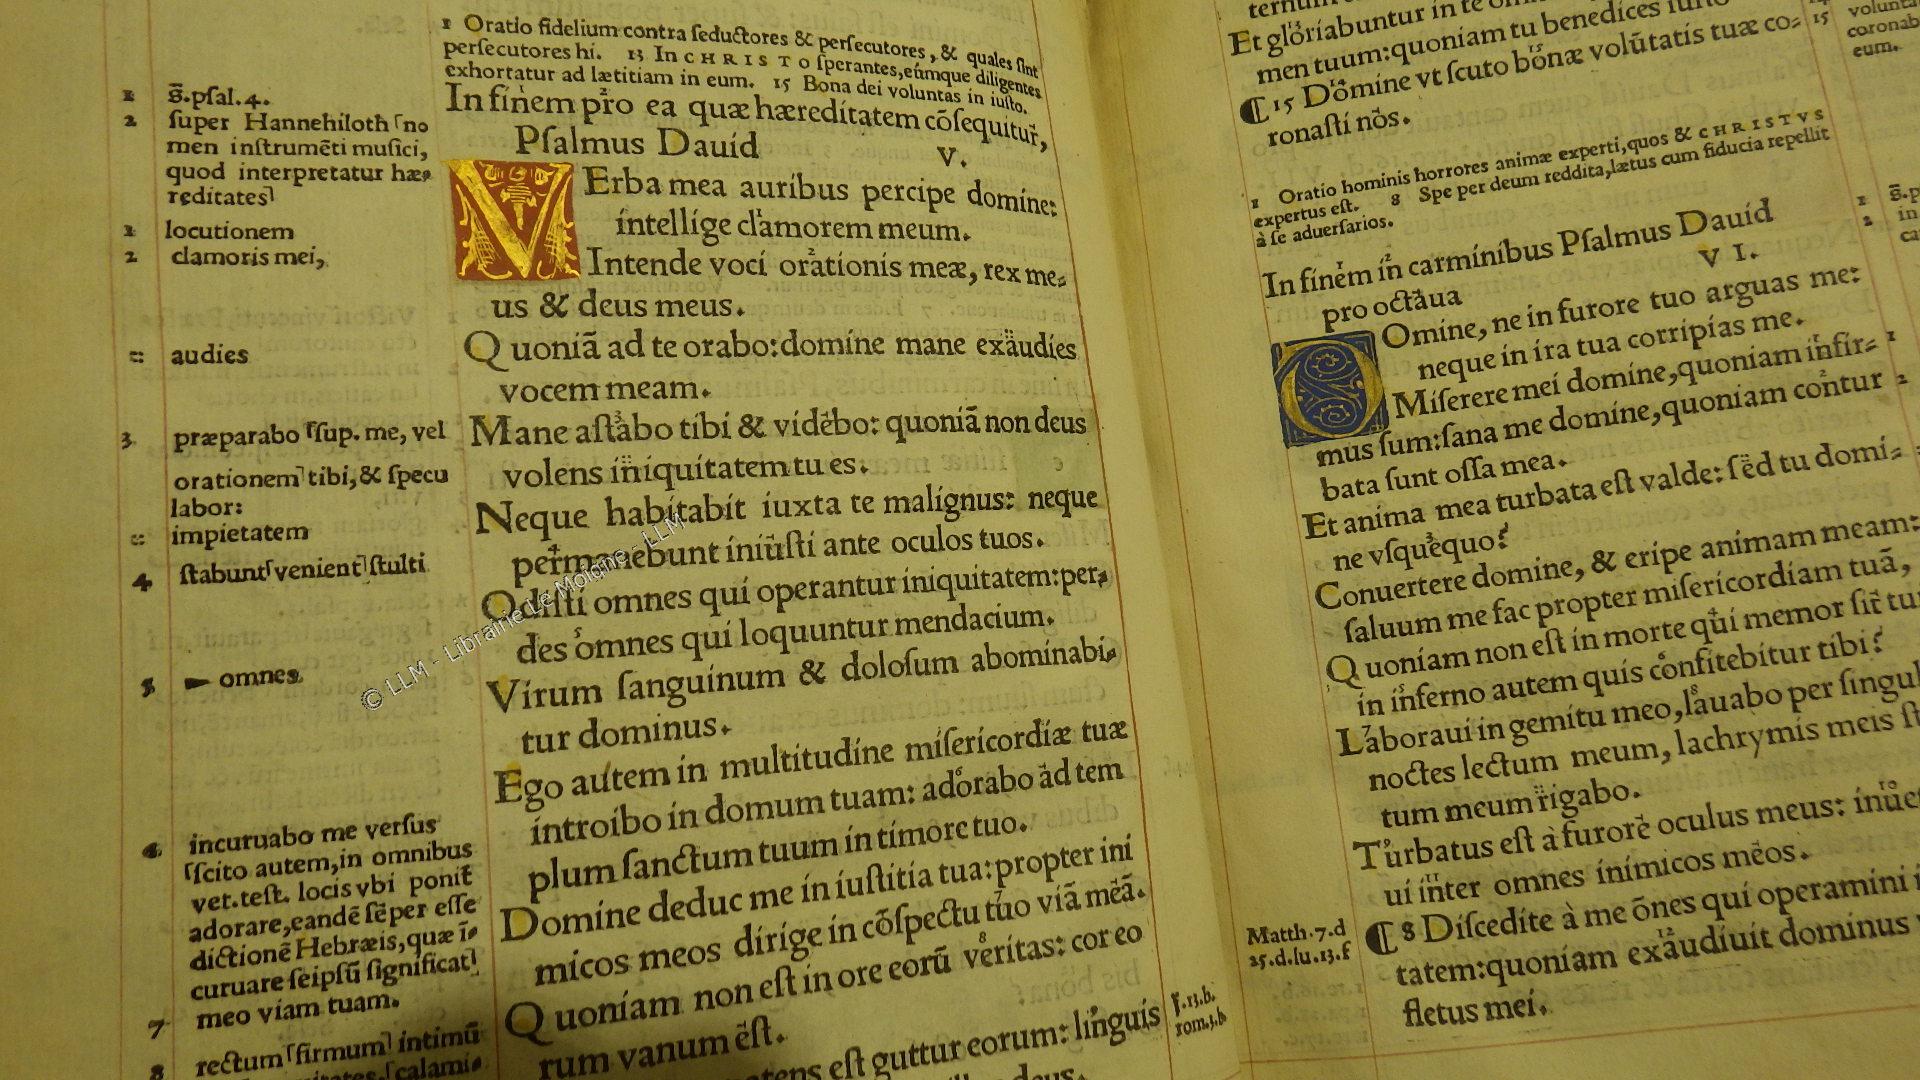 1 Oratio fidelium contra ſeductores & perſecutores, & quales ſint
perſecutores hi. 13 In CHRISTO ſperantes, eúmque diligentes
exhortatur ad lætitiam in eum. 15 Bona dei voluntas in iuſto.
In finem pro ea quæ hæreditatem cõſequitur,
Pſalmus Dauid V.
VErba mea auribus percipe domine:
intellige clamorem meum.
Intende voci orationis meæ, rex me⸗
us & deus meus.
Quoniã ad te orabo: domine mane exaudies
vocem meam.
Mane aſtabo tibi & videbo: quoniã non deus
volens iniquitatem tu es.
Neque habitabit iuxta te malignus: neque
permanebunt iniuſti ante oculos tuos.
Odiſti omnes qui operantur iniquitatem: per⸗
des omnes qui loquuntur mendacium.
Virum ſanguinum & doloſum abominabi⸗
tur dominus.
Ego autem in multitudine miſericordiæ tuæ
introibo in domum tuam: adorabo ad tem
plum ſanctum tuum in timore tuo.
Domine deduc me in iuſtitia tua: propter ini
micos meos dirige in cõſpectu tuo viã meã.
Quoniam non eſt in ore eorũ veritas: cor eo
rum vanum eſt.
eſt guttur eorum: linguis
1 s̃.pſal.4.
2 ſuper Hannehiloth ⸢no
men inſtrumẽti muſici,
quod interpretatur hæ⸗
reditates⸣
1 locutionem
2 clamoris mei,
:: audies
3 præparabo ⸢ſup. me, vel
orationem⸣ tibi, & ſpecu
labor:
:: impietatem
4 ſtabunt ⸢venient⸣ ſtulti
5 omnes
6 incuruabo me verſus
⸢ſcito autem, in omnibus
vet.teſt. locis vbi ponit
adorare, eandẽ ſẽper eſſe
dictionẽ Hebræis, quæ ĩ⸗
curuare ſeipſũ ſignificat⸣
7 meo viam tuam.
8 rectum ⸢firmum⸣ intimũ
calami⸗
ſ.13.b.
rom.3.b
Et gloriabuntur in te
men tuum: quoniam tu benedices iuſto
¶ 15 Domine vt ſcuto bonæ volũtatis tuæ co⸗
ronaſti nos.
15 volunta
coronab
eum.
1 Oratio hominis horrores animæ experti, quos & CHRISTVS
expertus eſt. 8 Spe per deum reddita, lætus cum fiducia repellit
à ſe aduerſarios.
In finem in carminibus Pſalmus Dauid
pro octaua VI.
DOmine, ne in furore tuo arguas me:
neque in ira tua corripias me.
Miſerere mei domine, quoniam infir⸗
mus ſum: ſana me domine, quoniam contur
bata ſunt oſſa mea.
Et anima mea turbata eſt valde: ſed tu domi⸗
ne vſquequo?
Conuertere domine, & eripe animam meam:
ſaluum me fac propter miſericordiam tuã,
Quoniam non eſt in morte qui memor ſit tui
in inferno autem quis confitebitur tibi?
Laboraui in gemitu meo, lauabo per ſingul
noctes lectum meum, lachrymis meis ſt
tum meum rigabo.
Turbatus eſt à furore oculus meus: inuet
ui inter omnes inimicos meos.
¶ 8 Diſcedite à me õnes qui operamini i
tatem: quoniam exaudiuit dominus
fletus mei.
Matth.7.d
25.d.lu.13.f
© LLM - Librairie Le Moione - LLM